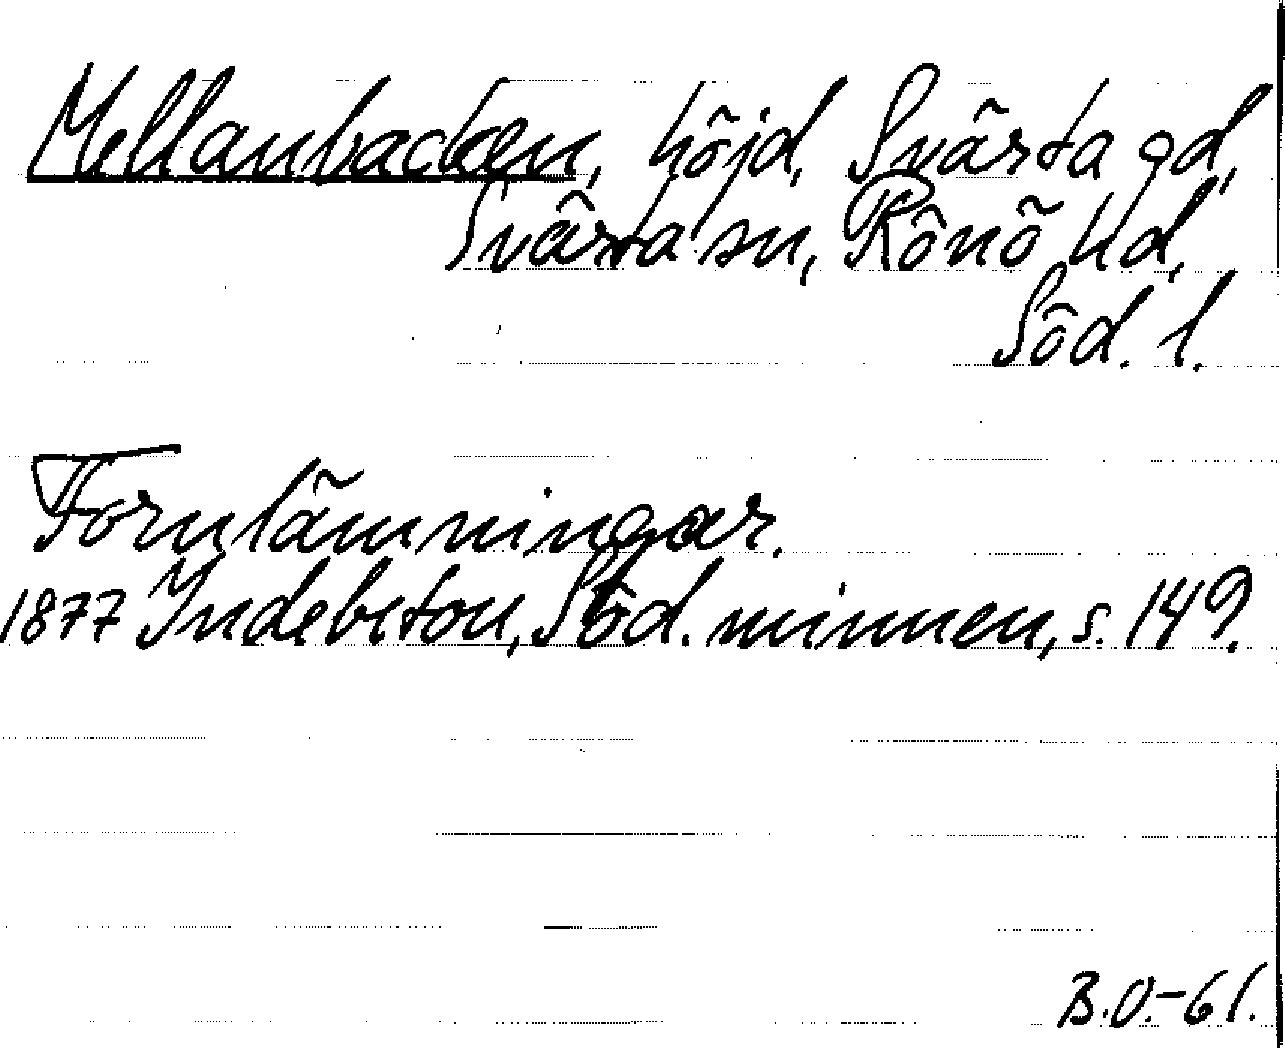 Mellanbacken, höjd, Svärta gd,
Svärta sn, Rönö hd,
Söd. l.
Fornlämningar.
1877 Indebetou, Söd. minnen, s. 149.
B.O.-61.